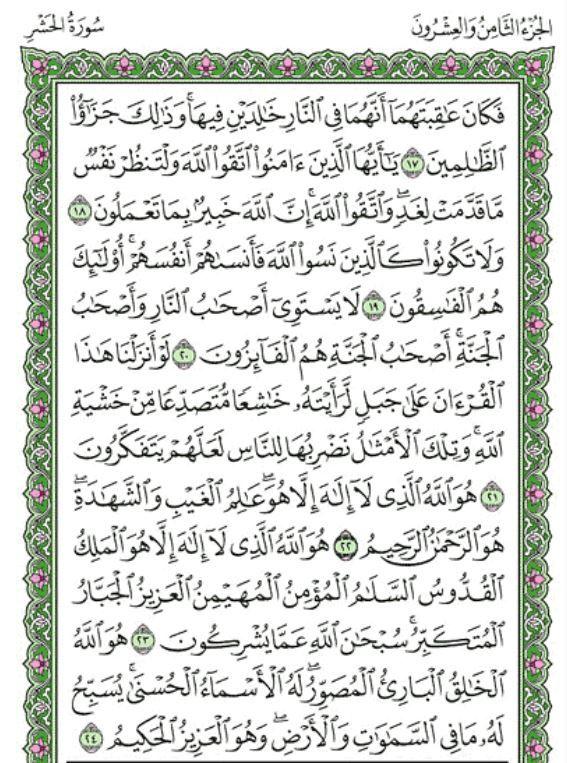 الجزء الثامن والعشرون
سورة الحشر
فَكَانَ عَٰقِبَتَهُمَآ أَنَّهُمَا فِي ٱلنَّارِ خَٰلِدَيۡنِ فِيهَاۚ وَذَٰلِكَ جَزَٰٓؤُاْ
ٱلظَّٰلِمِينَ ١٧ يَٰٓأَيُّهَا ٱلَّذِينَ ءَامَنُواْ ٱتَّقُواْ ٱللَّهَ وَلۡتَنظُرۡ نَفۡسٞ
مَّا قَدَّمَتۡ لِغَدٖۖ وَٱتَّقُواْ ٱللَّهَۚ إِنَّ ٱللَّهَ خَبِيرُۢ بِمَا تَعۡمَلُونَ ١٨
وَلَا تَكُونُواْ كَٱلَّذِينَ نَسُواْ ٱللَّهَ فَأَنسَىٰهُمۡ أَنفُسَهُمۡۚ أُوْلَٰٓئِكَ
هُمُ ٱلۡفَٰسِقُونَ ١٩ لَا يَسۡتَوِيٓ أَصۡحَٰبُ ٱلنَّارِ وَأَصۡحَٰبُ
ٱلۡجَنَّةِۚ أَصۡحَٰبُ ٱلۡجَنَّةِ هُمُ ٱلۡفَآئِزُونَ ٢٠ لَوۡ أَنزَلۡنَا هَٰذَا
ٱلۡقُرۡءَانَ عَلَىٰ جَبَلٖ لَّرَأَيۡتَهُۥ خَٰشِعٗا مُّتَصَدِّعٗا مِّنۡ خَشۡيَةِ
ٱللَّهِۚ وَتِلۡكَ ٱلۡأَمۡثَٰلُ نَضۡرِبُهَا لِلنَّاسِ لَعَلَّهُمۡ يَتَفَكَّرُونَ
٢١ هُوَ ٱللَّهُ ٱلَّذِي لَآ إِلَٰهَ إِلَّا هُوَۖ عَٰلِمُ ٱلۡغَيۡبِ وَٱلشَّهَٰدَةِۖ
هُوَ ٱلرَّحۡمَٰنُ ٱلرَّحِيمُ ٢٢ هُوَ ٱللَّهُ ٱلَّذِي لَآ إِلَٰهَ إِلَّا هُوَ ٱلۡمَلِكُ
ٱلۡقُدُّوسُ ٱلسَّلَٰمُ ٱلۡمُؤۡمِنُ ٱلۡمُهَيۡمِنُ ٱلۡعَزِيزُ ٱلۡجَبَّارُ
ٱلۡمُتَكَبِّرُۚ سُبۡحَٰنَ ٱللَّهِ عَمَّا يُشۡرِكُونَ ٢٣ هُوَ ٱللَّهُ
ٱلۡخَٰلِقُ ٱلۡبَارِئُ ٱلۡمُصَوِّرُۖ لَهُ ٱلۡأَسۡمَآءُ ٱلۡحُسۡنَىٰۚ يُسَبِّحُ
لَهُۥ مَا فِي ٱلسَّمَٰوَٰتِ وَٱلۡأَرۡضِۖ وَهُوَ ٱلۡعَزِيزُ ٱلۡحَكِيمُ ٢٤